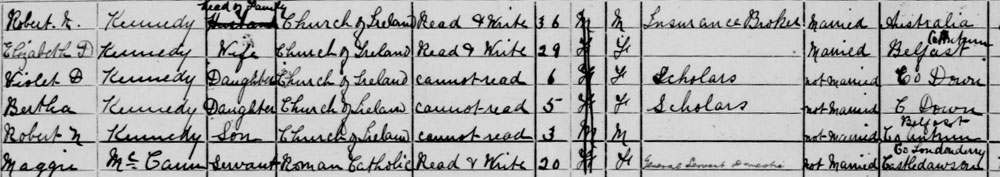 Robert N. Kennedy Head of Family Husband Church of Ireland Read & Write 36 M M Insurance Broker Married Australia
Elizabeth D Kennedy Wife Church of Ireland Read & Write 29 F F Married Belfast Co Antrim
Violet D Kennedy Daughter Church of Ireland cannot read 6 F F Scholars not Married Co Down
Bertha Kennedy Daughter Church of Irelan cannot read 5 F F Scholars not Married C Down
Robert N Kennedy Son Church of Ireland cannot read 3 M M not Married Belfast Co Antrim
Maggie McCann Servant Roman Catholic Read & Write 20 F F General Servant Domestic not Married Co Londonderry Castledawson